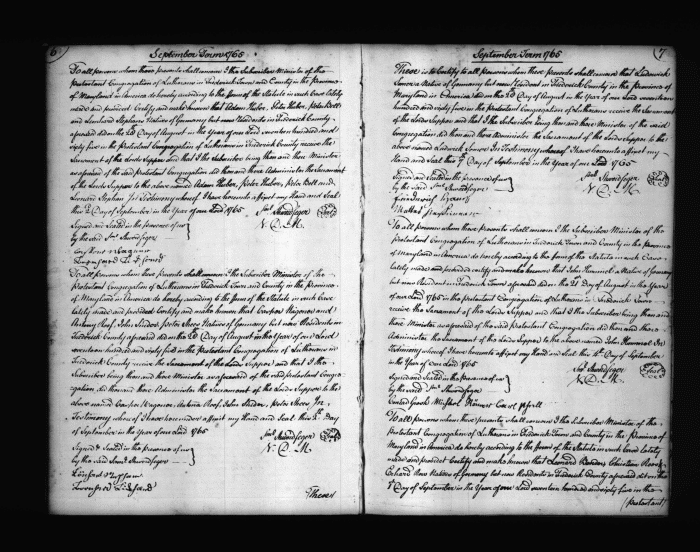 6
September Term 1765
To all persons whom these presents shall concern I the Subscriber Minister of the
protestant Congregation of Lutherans in Frederick Town and County in the province
of Maryland in America do hereby according to the form of the Statute in such Case lately
made and provided Certify and make known that Adam Huber, Peter Huber, Peter Bott
and Leonard Stephan Natives of Germany but now Residents in Frederick County
aforesaid did on the 28 Day of August in the Year of our Lord seventeen hundred and
sixty five in the protestant Congregation of Lutherans in Frederick County receive the
Sacrament of the Lords Supper and that I the Subscriber being then and there Minister
as aforesaid of the said protestant Congregation did then and there Administer the Sacrament
of the Lords Supper to the above named Adam Huber, Peter Huber, Peter Bott and
Leonard Stephan In Testimony whereof I have hereunto affixt my Hand and Seal
this Day of September in the Year of our Lord 1765
Signed and Sealed in the presence of us
by the said Saml. Schwerdfeger
Saml. Schwerdfeger Seal
To all persons whom these presents shall concern I the Subscriber Minister of the
protestant Congregation of Lutherans in Frederick Town and County in the province
of Maryland in America do hereby according to the form of the Statute in such Case
lately made and provided Certify and make known that Casper Hagener and
Antony Roof, John Snider peter Shees Natives of Germany but now Residents in
Frederick County aforesaid did on the 28 Day of August in the Year of our Lord
seventeen hundred and sixty five in the protestant Congregation of Lutherans in
Frederick County receive the Sacrament of the Lords Supper and that I the
Subscriber being then and there Minister as aforesaid of the said protestant Congre-
gation did then and there Administer the Sacrament of the Lords Supper to the
above named Casper Hagener, Antonia Roof, John Snider, peter Shees In
Testimony whereof I have hereunder affixt my Hand and Seal this Day
of September in the Year of our Lord 1765
Signed & Sealed in the presence
by the said Saml. Schwerdfeger
Saml. Schwerdfeger Seal
These
7
September Term 1765
These is to Certify to all persons whom these presents shall concern that Lodowick
a Native of Germany but now Resident in Frederick County in the province of
Maryland did on the 28 Day of August in the Year of our Lord seventeen hundred
and eighty five in the protestant Congregation of Lutherans receive the Sacrament
of the Lords Supper and that I the Subscriber being then and there Minister of the said
Congregation did then and there Administer the Sacrament of the Lords Supper to the
above named Lodowick In Testimony whereof I have hereunto affixt my
Hand and Seal this Day of September in the Year of our Lord 1765
Signed and Sealed in the presence of us
by the said Saml. Schwerdfeger
Saml. Schwerdfeger Seal
To all persons whom these presents shall concern I the Subscriber Minister of the
protestant Congregation of Lutherans in Frederick Town and County in the province
of Maryland in America do hereby according to the form of the Statute in such Case
lately made and provided certify and make known that John Hummel a Native of Germany
but now Resident in Frederick Town aforesaid did on the 28 Day of August in the Year
of our Lord 1765 in the protestant Congregation of Lutherans in Frederick Town
receive the Sacrament of the Lords Supper and that I the Subscriber being then and
there Minister as aforesaid of the said protestant Congregation did then and there
Administer the Sacrament of the Lords Supper to the above named John Hummel In
Testimony whereof I have hereunto affixt my Hand and Seal this Day of September
in the Year of our Lord 1765
Signed and Sealed in the presence of us
by the said Saml. Schwerdfeger
Saml. Schwerdfeger Seal
To all persons whom these presents shall concern I the Subscriber Minister of the
protestant Congregation of Lutherans in Frederick Town and County in the Province of
Maryland in America do hereby according to the form of the Statute in such Case lately
made and provided Certify and make known that Leonard Christian
Natives of Germany but now Residents in Frederick County aforesaid did on the
Day of September in the Year of our Lord seventeen hundred and sixty five in the
protestant